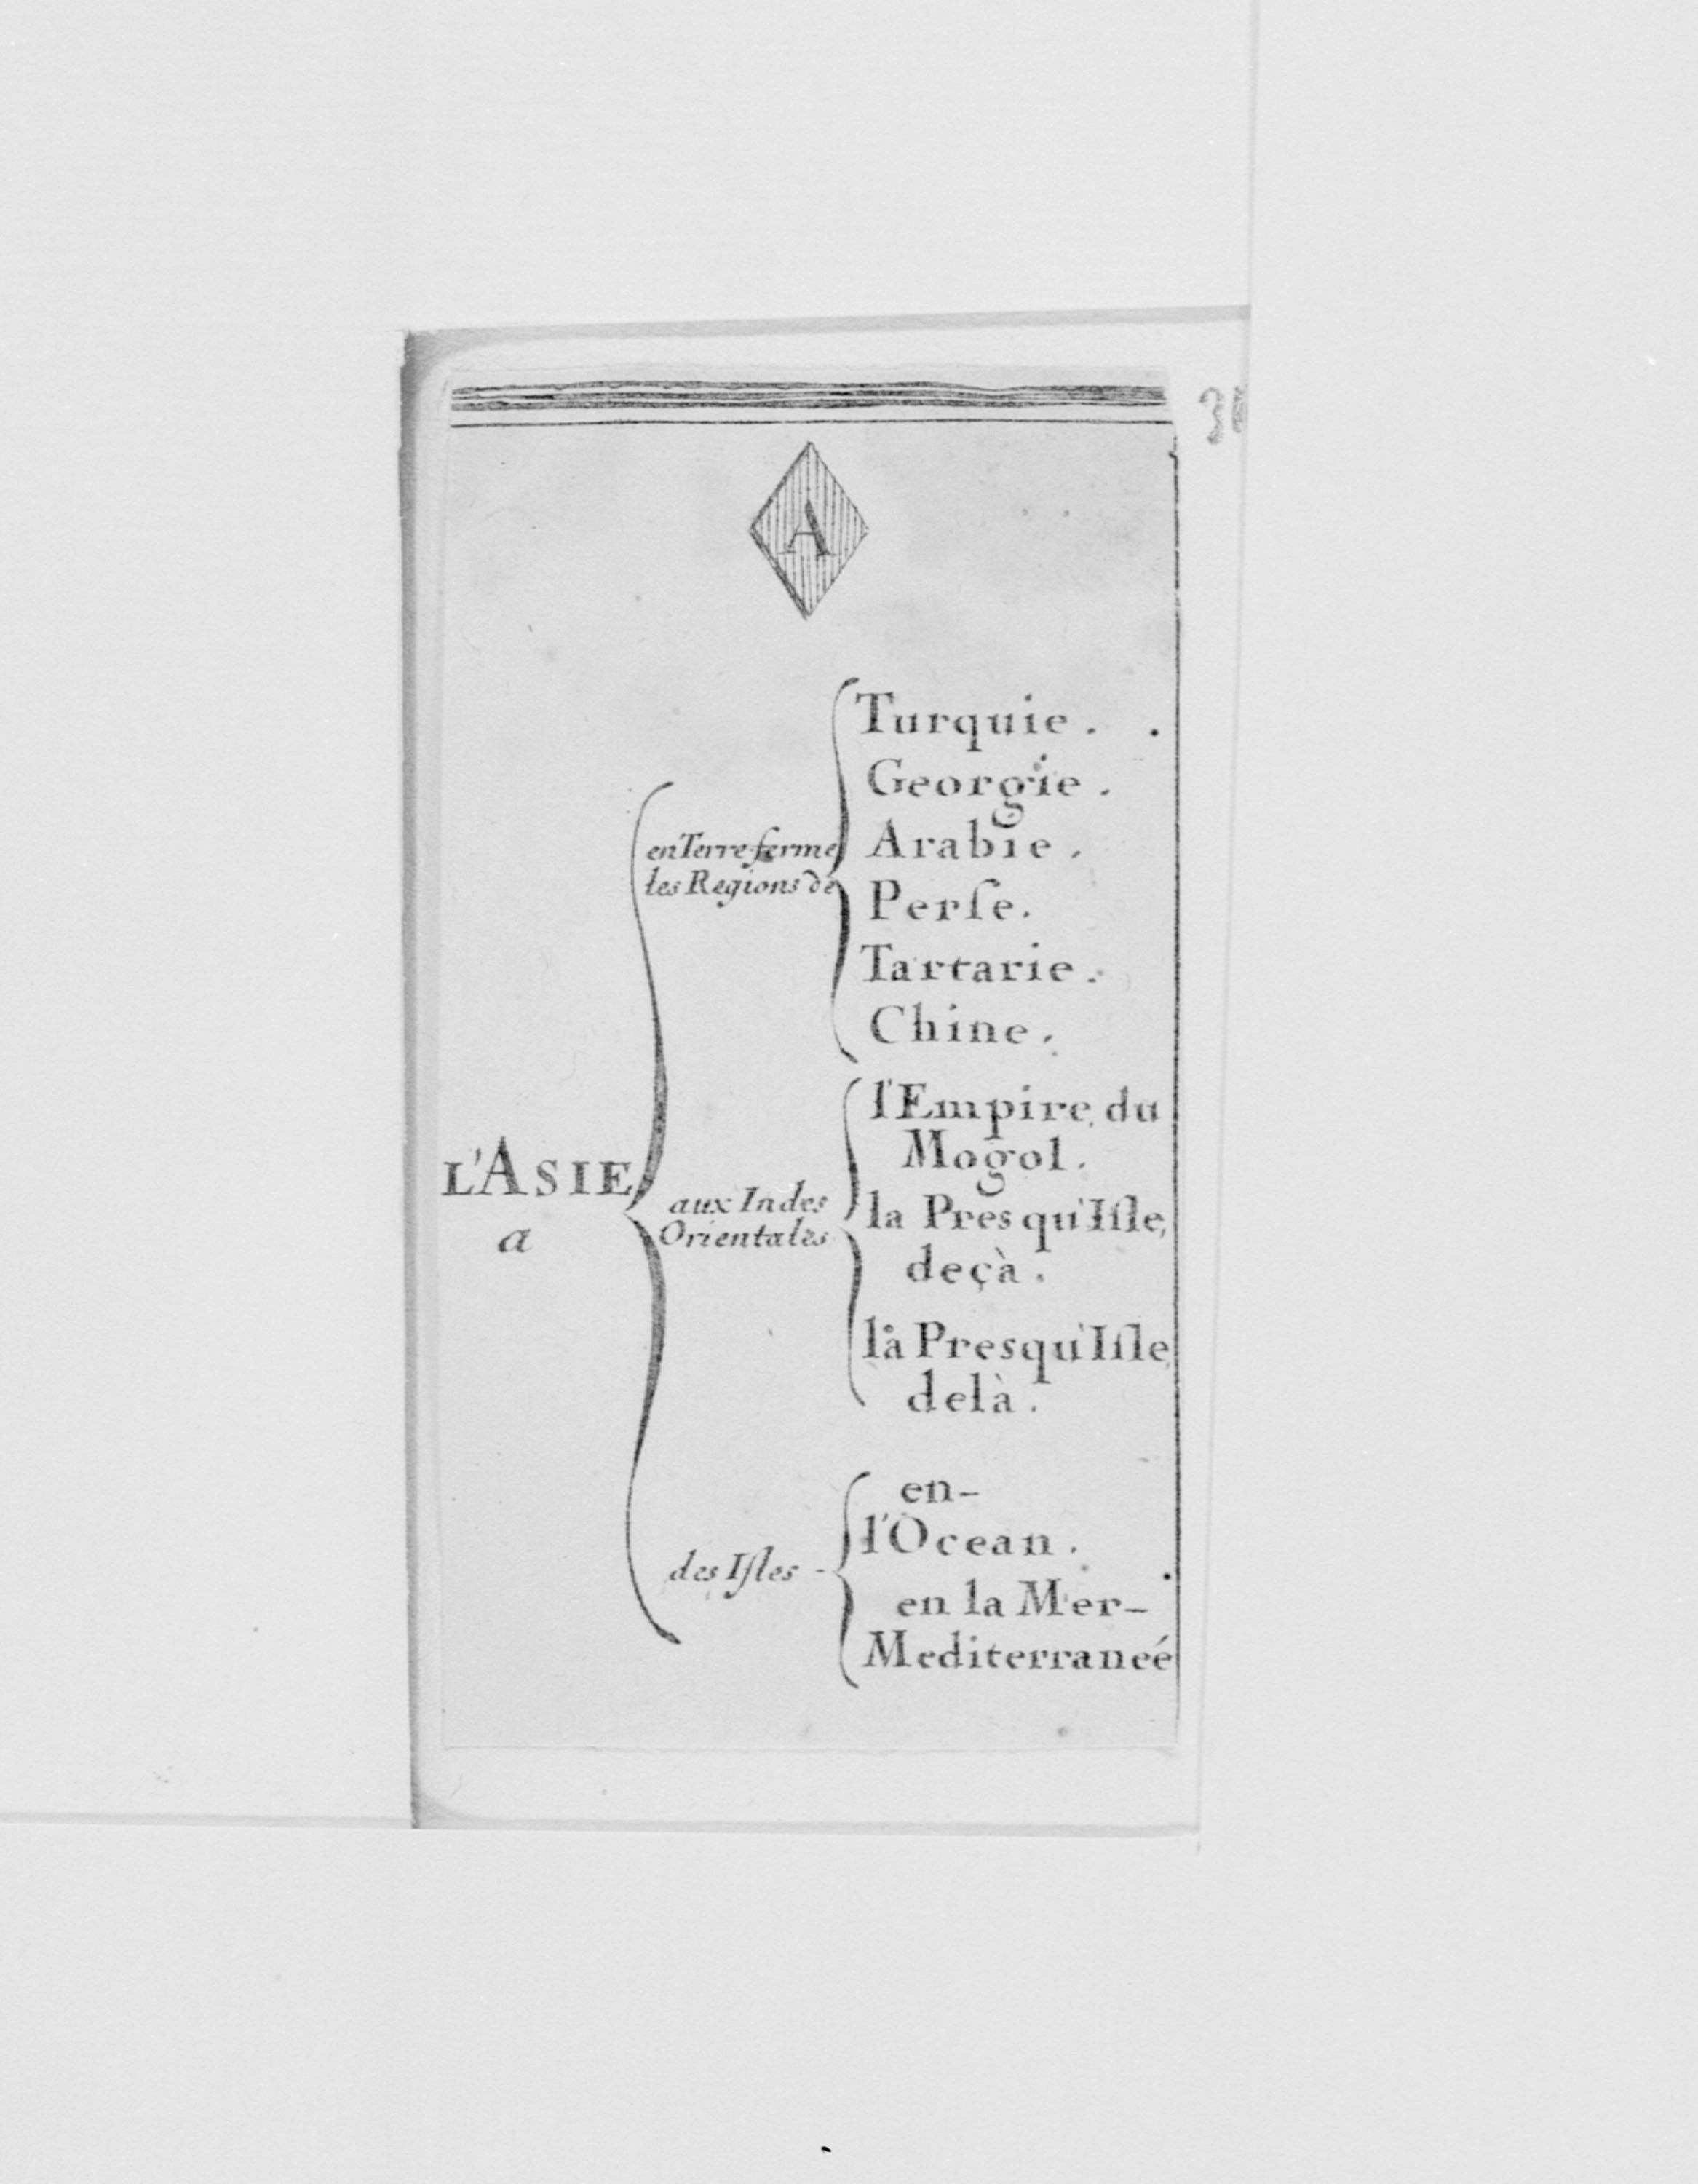 A
L'ASIE
a
en Terre-ferme
les Regions de
Turquie.
Georgie.
Arabie.
Perſe.
Tartarie.
Chine.
aux Indes
Orientales
l'Empire du
Mogol.
la Presqu'Iſle
deçà.
la Presqu'Iſle
delà.
des Iſles -
en-
l'Ocean.
en la Mer-
Mediterraneé